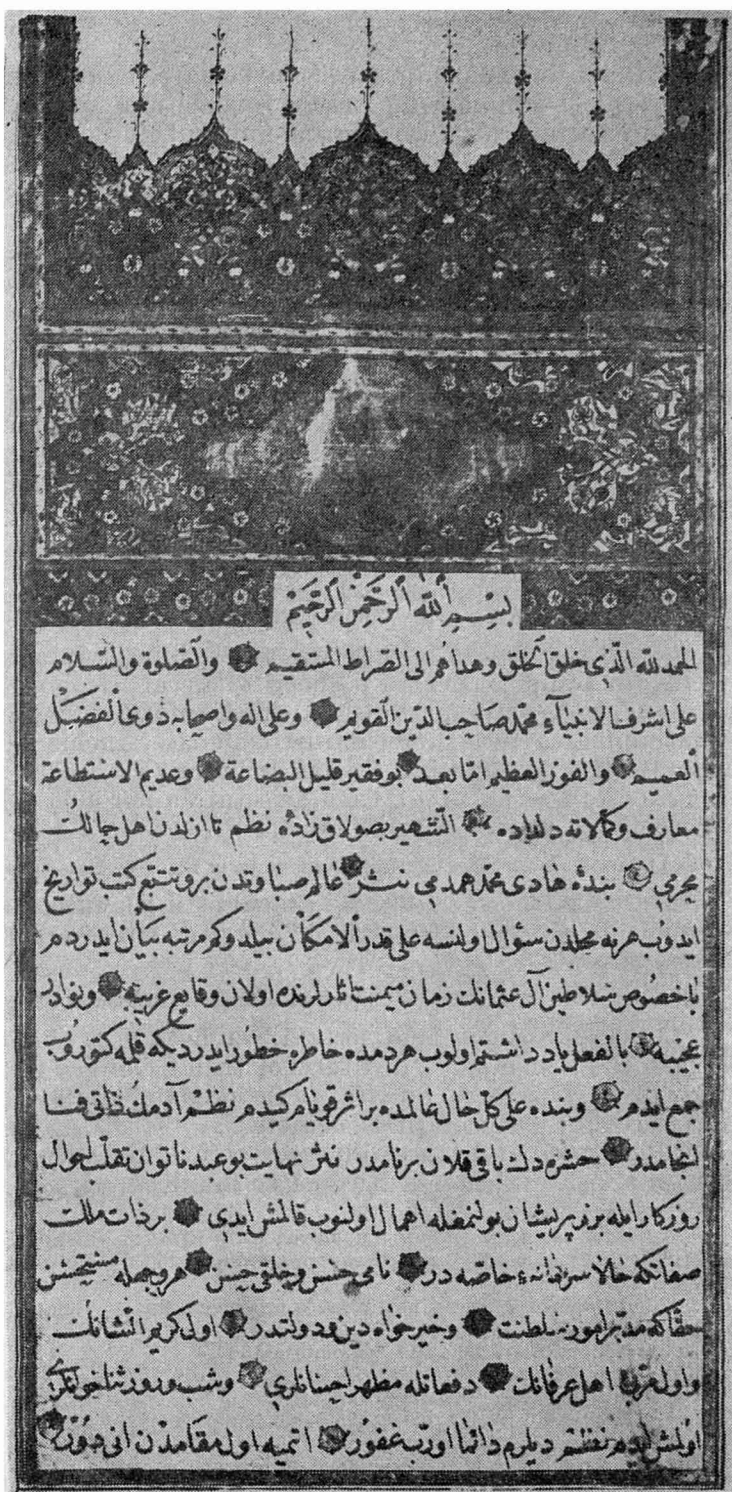 بسم الله الرحمن الرحيم
الحمد لله الذى خلق الخلق وهداهم الى الصراط المستقيم والصلوة والسلام
على اشرف الانبياء محمد صاحب الدين القويم وعلى اله واصحابه ذوى الفضل
العميم والفوز العظيم اما بعد بو فقير قليل البضاعة وعديم الاستطاعة
معارف وكمالاته دلداده الشهير بصولاق زاده نظم تا ازلدن اهل حالك
محرمى بندۀ هادى محمد همدمى نثر عالم صباوتدن برو تتبع كتب تواريخ
ايدوب هر نه محلدن سؤال اولنسه على قدر الامكان بيلدوكم مرتبه بيان ايدردم
باخصوص سلاطين آل عثمانك زمان ميمنت اثارلرنده اولان وقايع غريبه ونوادر
عجيبه بالفعل ياد داشتم اولوب هر دمده خاطره خطور ايدرديكه قلمه كتوروب
جمع ايدم وبنده على كل حال عالمده بر اثر قويام كيدم نظم آدمك ذاتى فنا
انجامدر حشره دك باقى قلان بر نامدر نثر نهايت بو عبد ناتوان تقلب احوال
روزكار ايله برز پريشان بولنمغله اهمال اولنوب قالمش ايدى بر ذات ملك
صفاتكه حالا سرخانهء خاصه در نامى حسن وخلقى حسن هر وجهله مستحسن
حقا كه مدبر امور سلطنت وخير خواه دين ودولتدر اول كريم الشانك
واول مربئ اهل عرفانك دفعاتله مظهر احسانلرى وشب وروز ثنا خوانلرى
اولمش ايدم نظم ديلرم دائما اورب غفور اتميه اول مقامدن انى دور